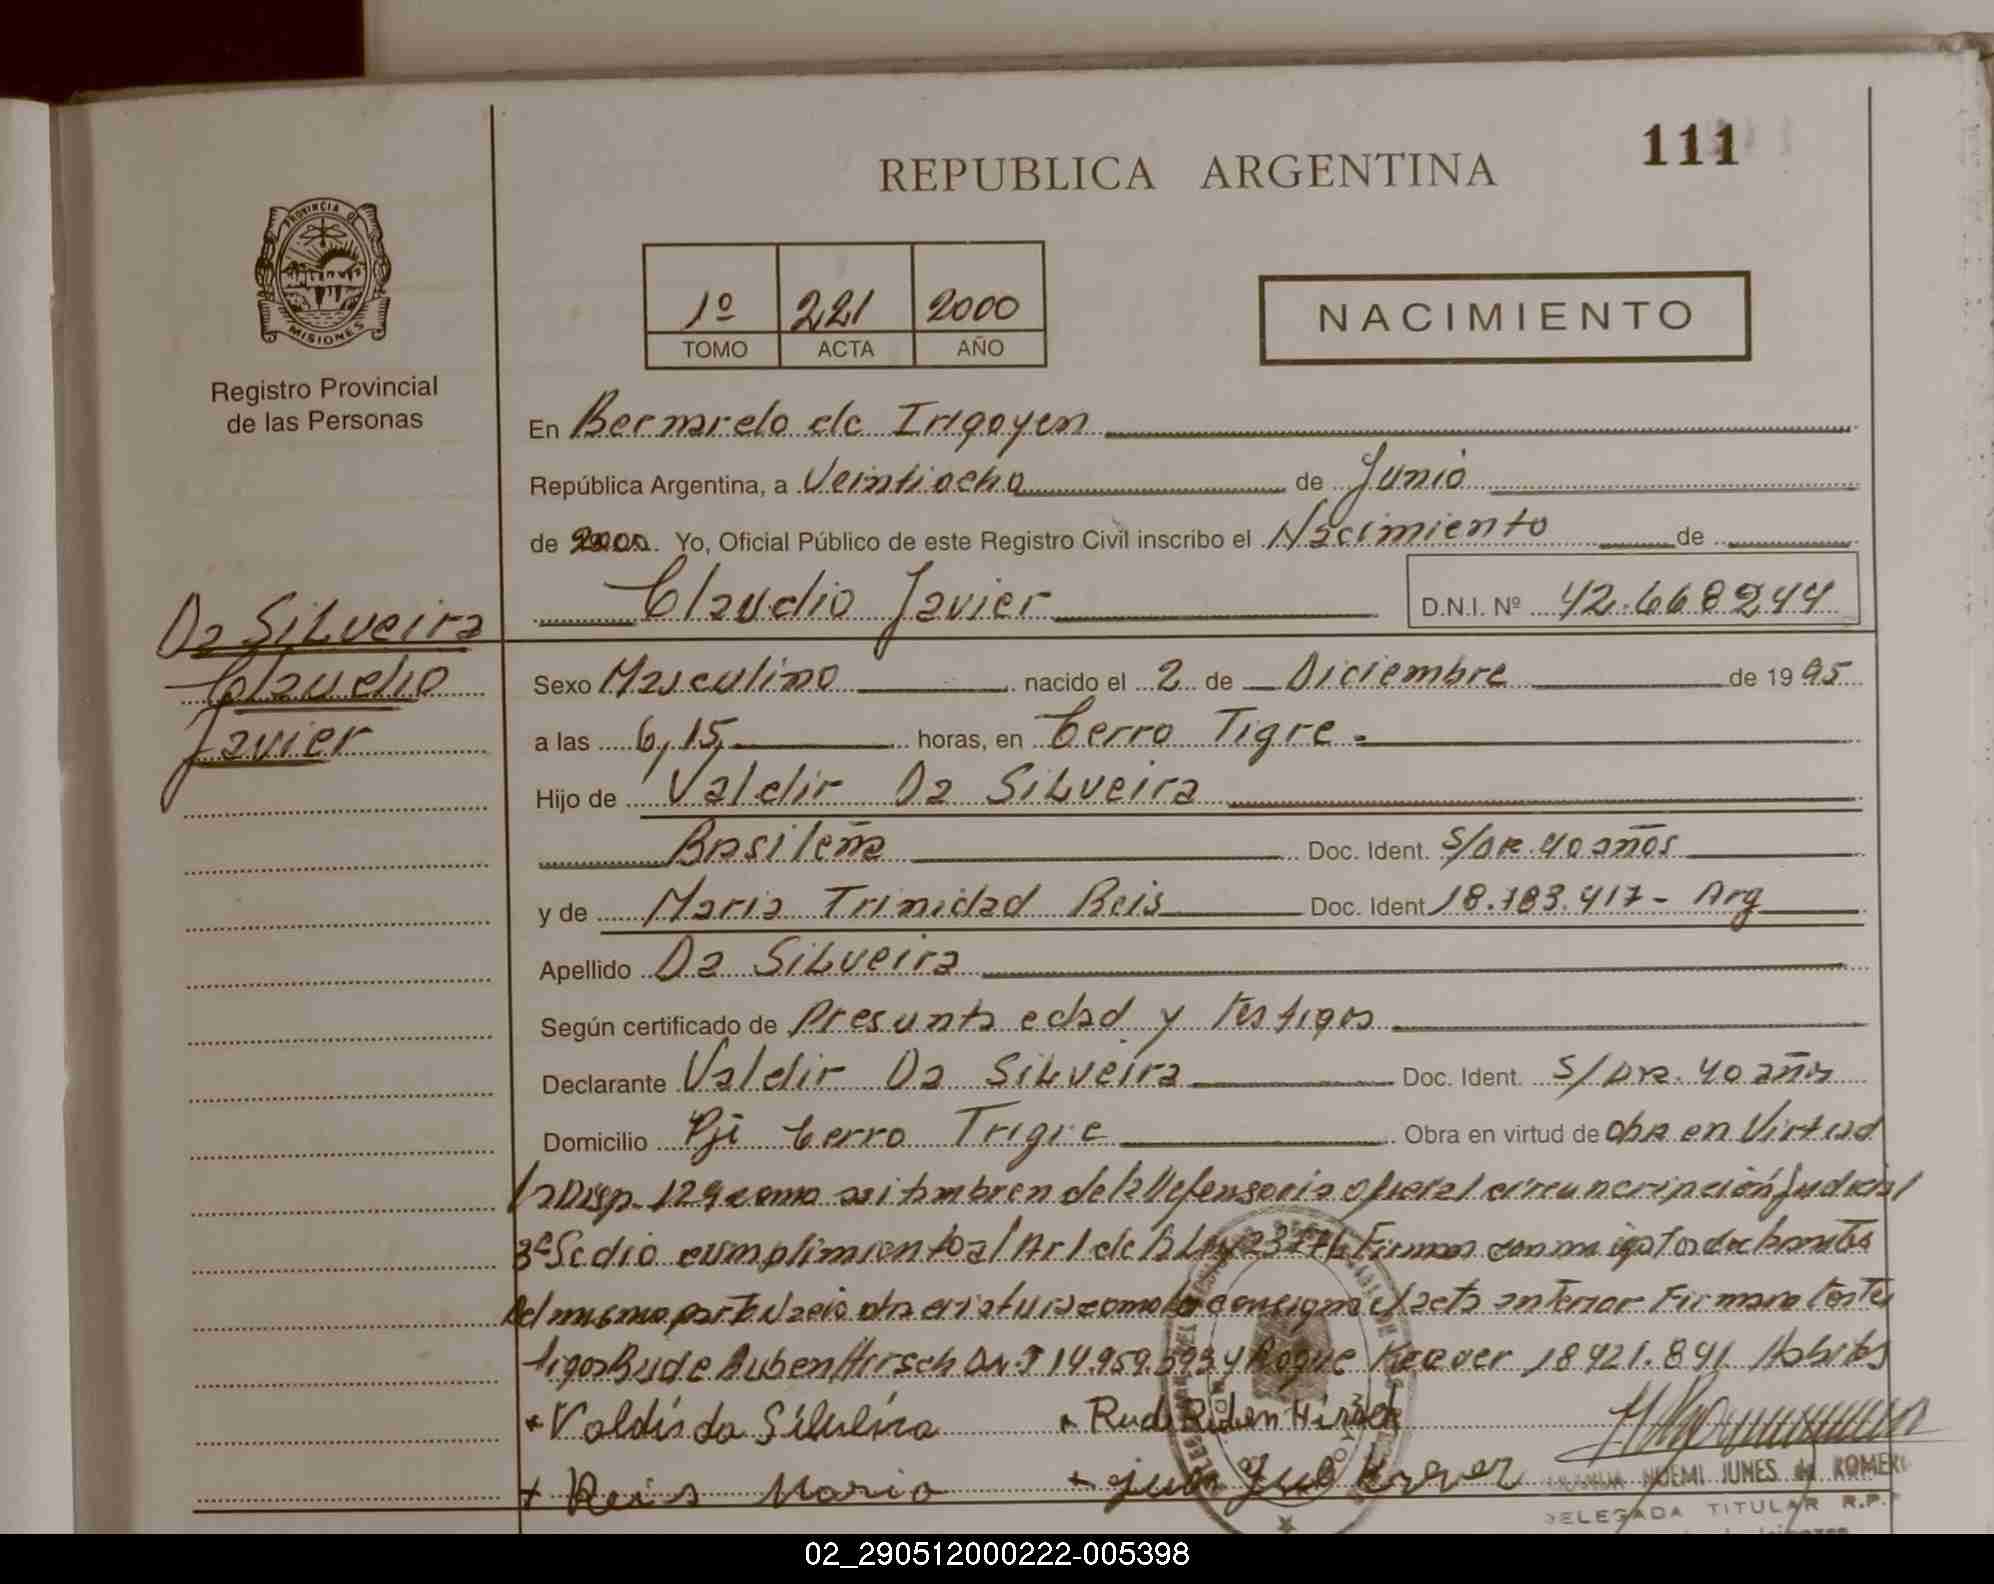 111
REPUBLICA ARGENTINA
PROVINCIA DE
MISIONES
Registro Provincial
de las Personas
1º 221 2000
TOMO ACTA AÑO
NACIMIENTO
En Bernardo de Irigoyen
República Argentina, a Veintiocho de Junio
de 2000 Yo, Oficial Público de este Registro Civil inscribo el Nacimiento de
Claudio Javier D.N.I. Nº 42.668244
Da Silveira
Claudio
Javier
Sexo Masculino nacido el 2 de Diciembre de 1995
a las 6,15 horas, en Cerro Tigre.
Hijo de Valdir Da Silveira
Brasileña Doc. Ident. S/DR. 40 años
y de Maria Trinidad Reis Doc. Ident 18.783.417- Arg
Apellido Da Silveira
Según certificado de Presunta edad y testigos
Declarante Valdir Da Silveira Doc. Ident. S/DR. 40 años
Domicilio Pje Cerro Tigre Obra en virtud de Obra en Virtud
la Disp. 129 como asi tambien de la Defensoria oficial circuncripción Judicial
3ª Se dio cumplimiento al Art 1 de la Ley Firman con migo los declarantes
Del mismo criatura como lo consigna el acta anterior Firman testes
tigos Rude Ruben Hirsch D.N.I 14.959. y Roque Kraver 18421.841 Habiles
+ Valdir da Silveira + Rude Ruben Hirsch
+ Reis Maria + Kraver
NOEMI JUNES de ROMERO
DELEGADA TITULAR R.P.
02_290512000222-005398